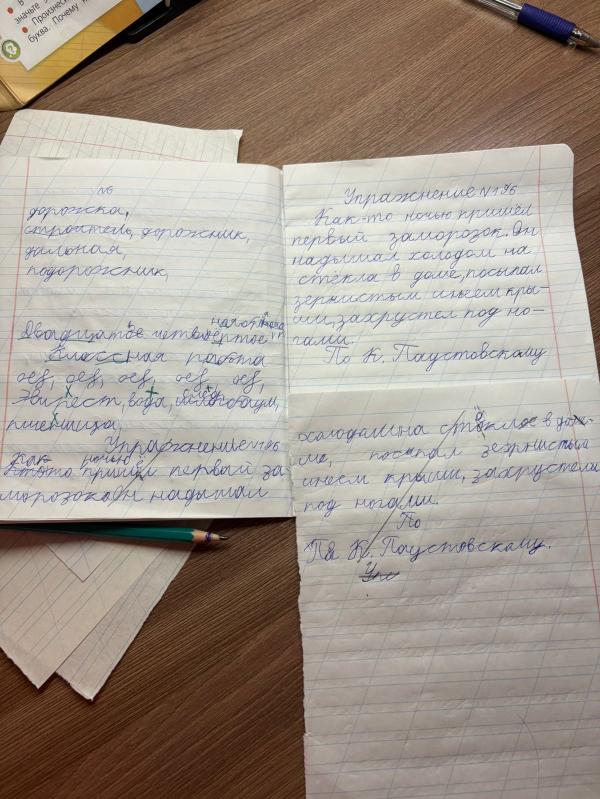 значьте
• Произнес
буква. Почему
№
дорожка,
строитель, дорожник,
дальная,
подорожник,
Двадцатое четвёртое,
Классная работа
Эвирест, вода,
пшеница,
Упражнение №196
Как ночью
пришёл первый за-
морозок он надышал
Упражнение №196
Как-то ночью пришёл
первый заморозок. Он
надышал холодом на
стёкла в доме, посыпал
зернистым инеем кры-
ши, захрустел под но-
гами.
По К. Паустовскому
холодам на стёкла в до
ме, посыпал зезрнистым
инеем крыши, захрустели
под ногами.
По
По К. Паустовскому.
Упр